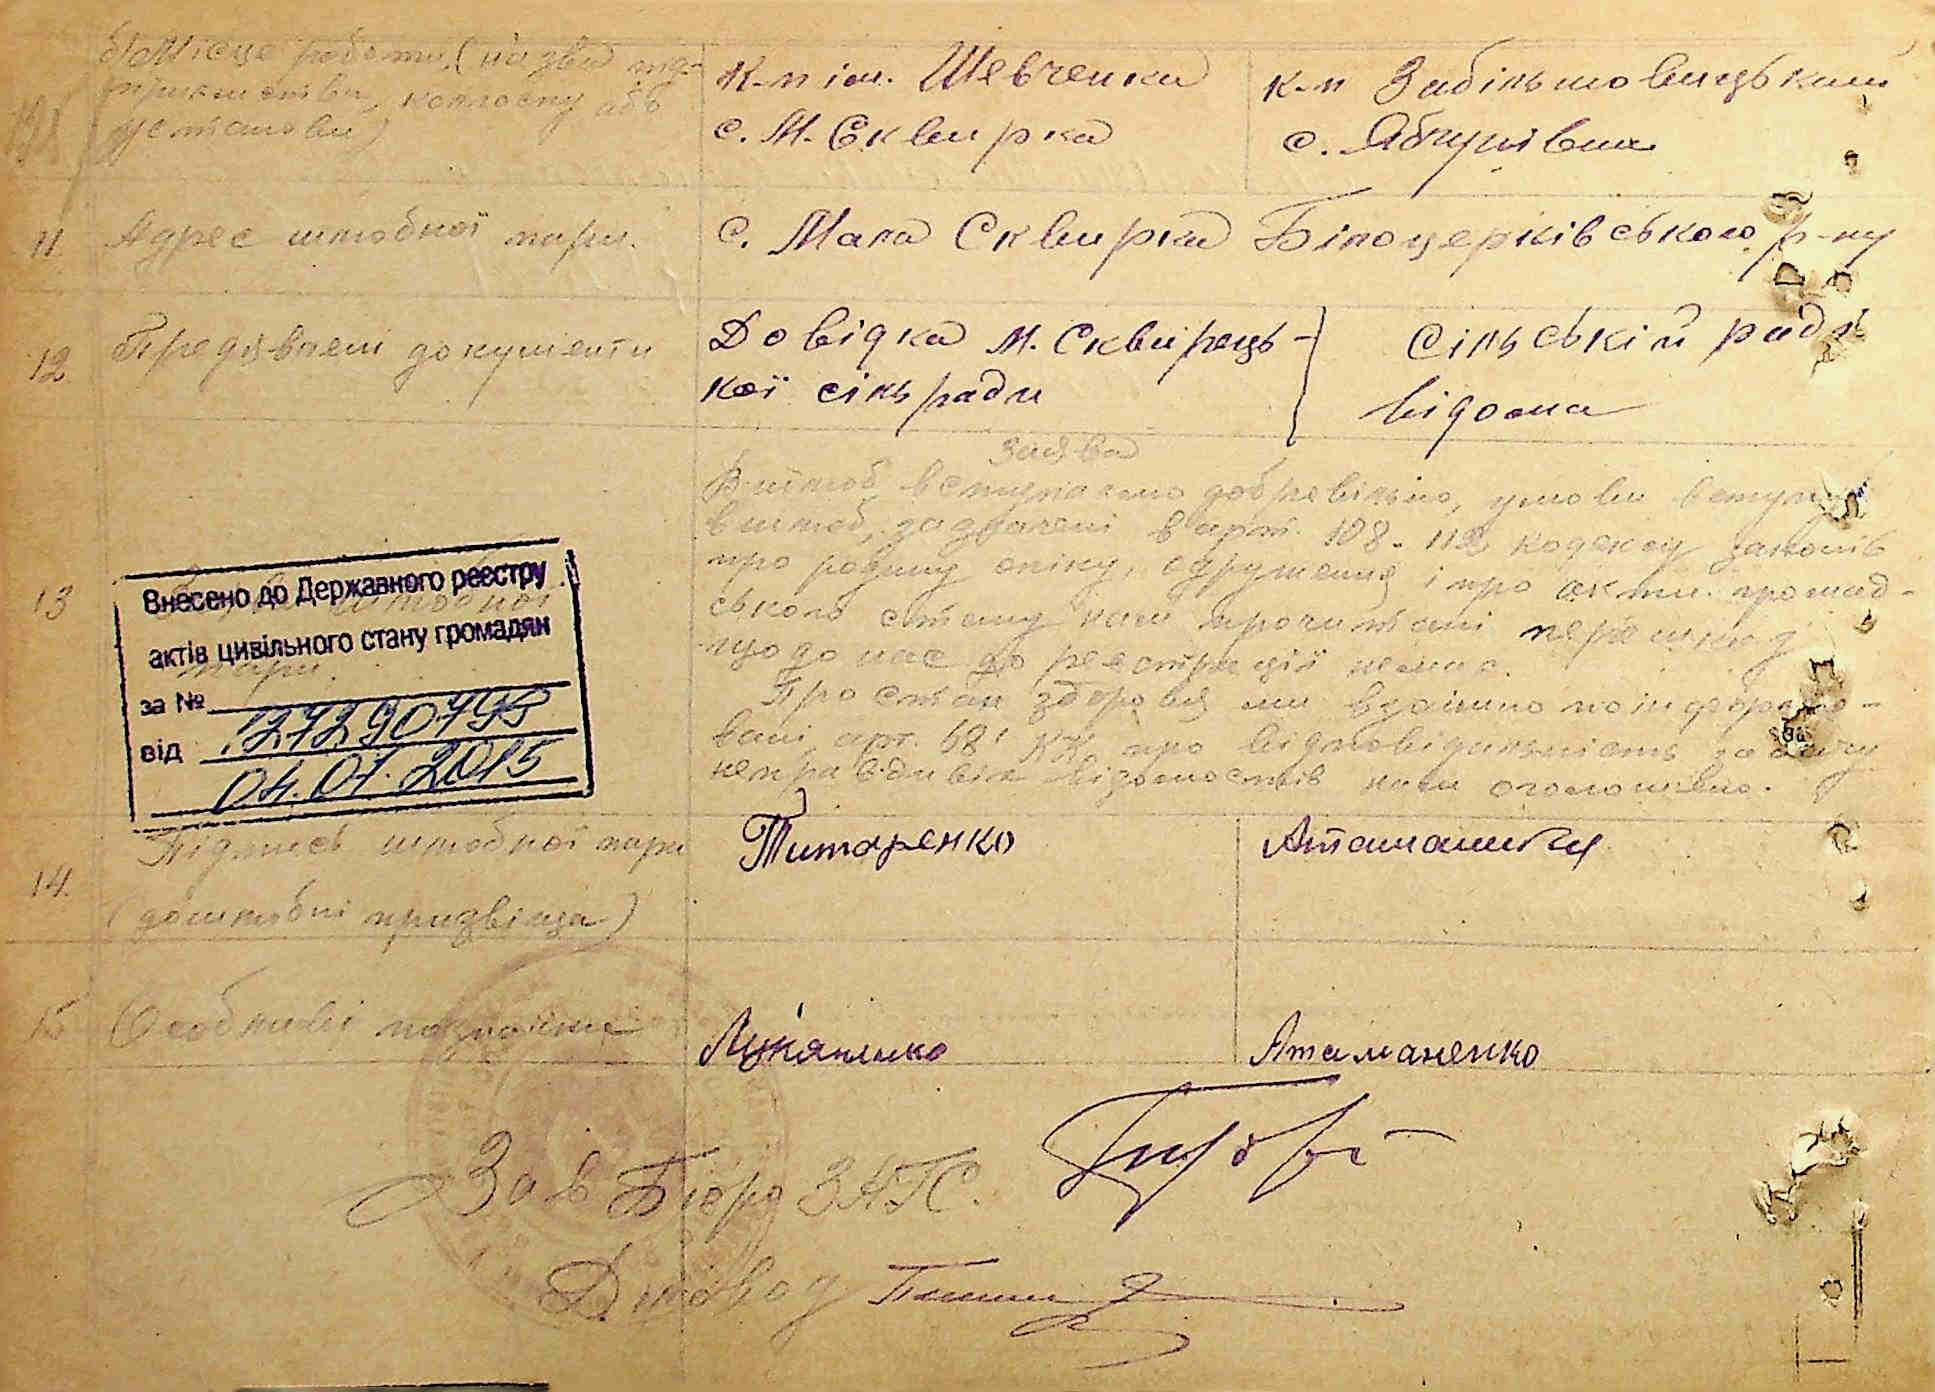 б) Місце роботи (назва підприємства, колгоспу або установи)
к-п ім. Шевченка
с. М. Сквирка
к-п Забільшовицький
с. Яблунівка
11. Адрес шлюбної пари.
с. Мала Сквирка Білоцерківського р-ну
12. Предявлені документи
Довідка М. Сквирець-
кої сільради
Сільській раді
відома
Заява
В шлюб вступаємо добревільно, умови вступу
в шлюб, зазначені в арт. 108-112 кодексу законів
про родину опіку, одруження і про акти громад-
ського стану нам прочитані перешкод
що до нас до реєстрації немає.
Про стан здоровя ми взаїмно поінформо-
вані арт. 68' КК про відповідальність за дачу
неправдивих відомостів нам оголошено.
13
шлюбної
пари.
Внесено до Державного реєстру
актів цивільного стану громадян
за №
від 127290795
04.01.2015
14. Підпись шлюбної пари
(дошлюбні призвіща)
Титаренко
Атаманенко
15 Особливі
Лук'яненко
Атаманенко
Зав Бюро ЗАГС.
Діловод